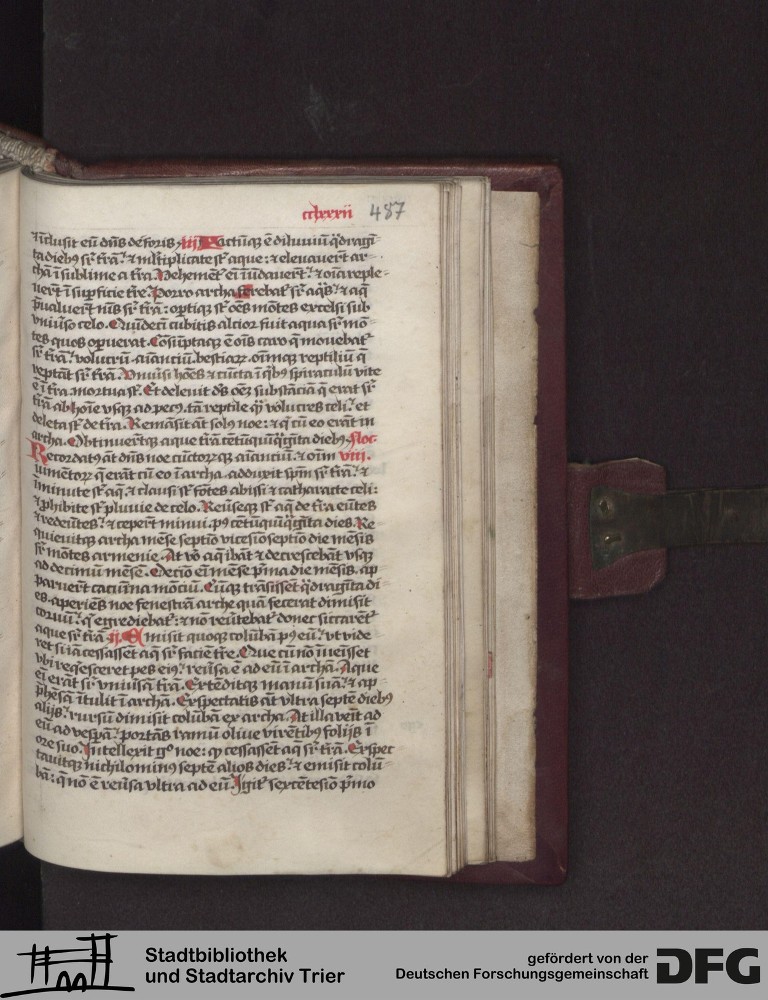 cclxxxii 487
⁊ īclusit eū dn̄s deforis. iij Factūqꝫ ē diluuiū q̈dragī
ta diebꝰ sr̄ trā. ⁊ ml̄tiplicate st̄ aque: ⁊ eleuauert̄ ar
chā ī sublime a tra. Vehemēt̄ eī īūdauert̄. ⁊ oīa reple
uert̄ ī suꝑficie tre. Porro archa ferebat̄ sr̄ aq̄s. ⁊ aq̄
p̄ualuert̄ nīs sr̄ trā: optiqꝫ st̄ oēs mōtes excelsi sub
vniu͛so celo. Quīdecī cubitis altior fuit aqua sr̄ mō
tes quos oꝑuerat. Cōsūptaqꝫ ē oīs caro q̄ mouebat̄
sr̄ trā. volucrū. aīantiū. bestiaꝝ. oīmqꝫ reptiliū q̄
reptāt sr̄ trā. Vniu͛si hoēs ⁊ cūcta ī q̄bꝰ spiraculū vite
ē ī tra mortua st̄. Et deleuit ds̄ oēꝫ substātiā q̄ erat sr̄
trā ab hoīe vsqꝫ ad pecꝰ. tā reptile q̄ꝫ volucres celi. et
deleta st̄ de tra. Remāsit āt solꝰ noe: ⁊ q̄ cū eo erāt in
archa. Obtinuert̄qꝫ aque trā cētūquīq̈gīta diebꝰ.
Recordatꝰ āt dn̄s noe cūctorꝫqꝫ aīantiū. ⁊ oīm viii.
iumētoꝝ q̄ erāt cū eo ī archa. adduxit spm̄ sr̄ trā. ⁊
īminute st̄ aq̄. ⁊ clausi st̄ fōtes abissi ⁊ catharacte celi:
⁊ ꝓhibite st̄ pluuie de celo. Reūseqꝫ st̄ aq̄ de tra eūtes
⁊ redeūtes. ⁊ ceꝑt̄ minui. pꝰ cētūquīq̈gīta dies. Re
quieuitqꝫ archa mēse septīo vicesīoseptīo die mēsis
sr̄ mōtes armenie. At vō aq̄ ibāt ⁊ decrescebāt vsqꝫ
ad decimū mēsē. Decīo eī mēse p̄ma die mēsis. ap
paruert̄ cacumīa mōtiū. Cūqꝫ trāsisset q̈dragīta di
es. aꝑiēs noe fenestrā arche quā fecerat dimisit
coruū. q̄ egrediebat̄: ⁊ nō reu͛tebat̄ donec siccarēt̄
aque sr̄ trā. ij. Emisit quoqꝫ colūbā pꝰ eū. vt vide
ret si iā cessassēt aq̄ sr̄ faciē tre. Que cū nō īuēisset
vbi reqͥesceret pes eiꝰ. reu͛sa ē ad eū ī archā. Aque
eī erāt sr̄ vniu͛sā trā. Extēditqꝫ manū suā. ⁊ ap
p̄hēsā ītulit ī archā. Exspectatis āt vltra septē diebꝰ
alijs. rursū dimisit colūbā ex archa. At illa veīt ad
eū ad vesꝑā. portās ramū oliue virētibꝰ folijs ī
ore suo. Intellexit gͦ noe: ꝙ cessassēt aq̄ sr̄ trā. Exspec
tauitqꝫ nichilominꝰ septē alios dies. ⁊ emisit colū
bā: q̄ nō ē reu͛sa vltra ad eū. Igit̄ sexcētesīo p̄mo
Stadtbibliothek
und Stadtarchiv Trier
gefördert von der
Deutschen Forschungsgemeinschaft
DFG